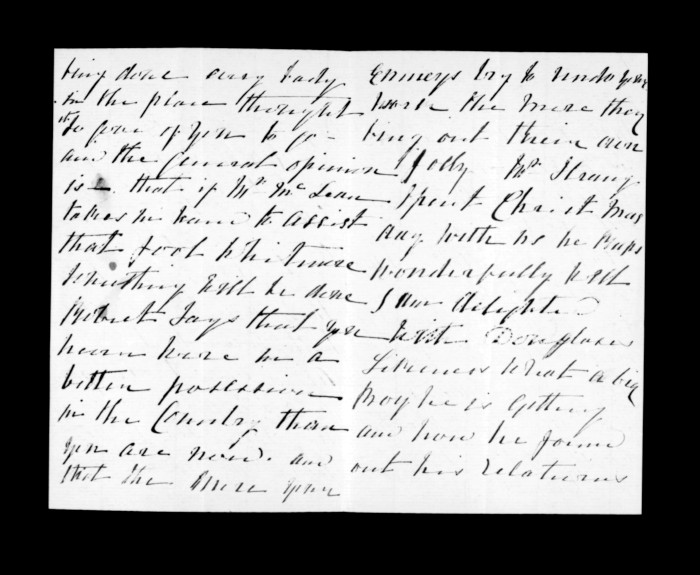 being done every body
in the place thought
to give of you to go
and the general opinion
is - that if Mr McLean
takes in hand to assist
that fool Whitmore
Something will be done
Robert Says that you
never were in a
better possession
in the Country than
you are now. and
that the more your
Enmeys try to undo your
work the more they
bring out their own
folly Mr Strang
Spent Christ Mas
day with us he keeps
wonderfully well
I am delighted
with Douglases
Likeness what a big
Boy he is getting
and how he found
out his relations